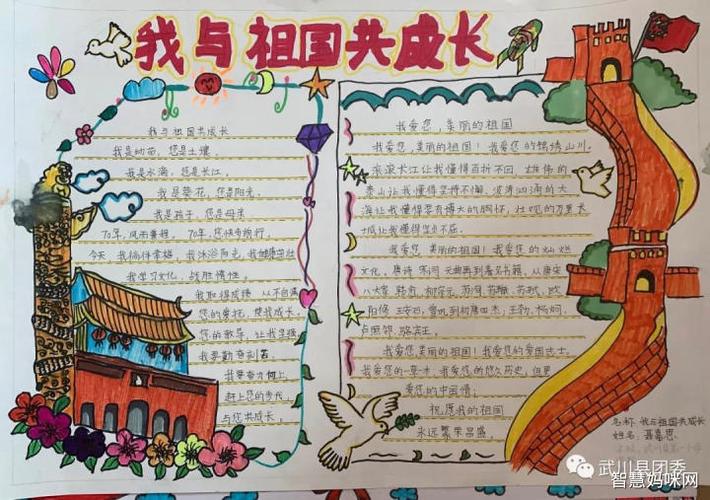 我与祖国共成长
我与祖国共成长
我是幼苗，您是土壤，
我是水滴，您是长江，
我是葵花，您是阳光，
我是孩子，您是母亲
70年，风雨兼程，70年，您快步前行，
今天 我倘佯幸福，我沐浴阳光，我健康茁壮
我学习文化，战胜惰性，
我取得成绩 从不自满
您的爱托，使我成长，
您的教导，让我坚强
我要勤奋刻苦
我要奋力向上
赶上您的步伐，
与您共成长，
我爱您，美丽的祖国
我爱您，美丽的祖国！我爱您的锦绣山川。
滚滚长江让我懂得百折不回 雄伟的
泰山让我懂得坚持不懈，波涛汹涌的大
海让我懂得要有博大的胸怀，壮观的万里长
城让我懂得坚贞不屈。
我爱您，美丽的祖国！我爱您的灿烂
文化，唐诗 宋词 元曲再到著名书籍，从唐宋
八大家 韩愈，柳宗元，苏洵，苏轼，苏辙，欧
阳修 王安石，曾巩到初唐四杰：王勃，杨炯，
卢照邻 骆宾王。
我爱您，美丽的祖国！我爱您的爱国志士。
我爱您的一草一木，我爱您的悠久历史，但更
爱您的中国情；
祝愿我的祖国
永远繁荣昌盛，
名称：我与祖国共成长
姓名：聂嘉思
武川县团委
智慧妈咪网